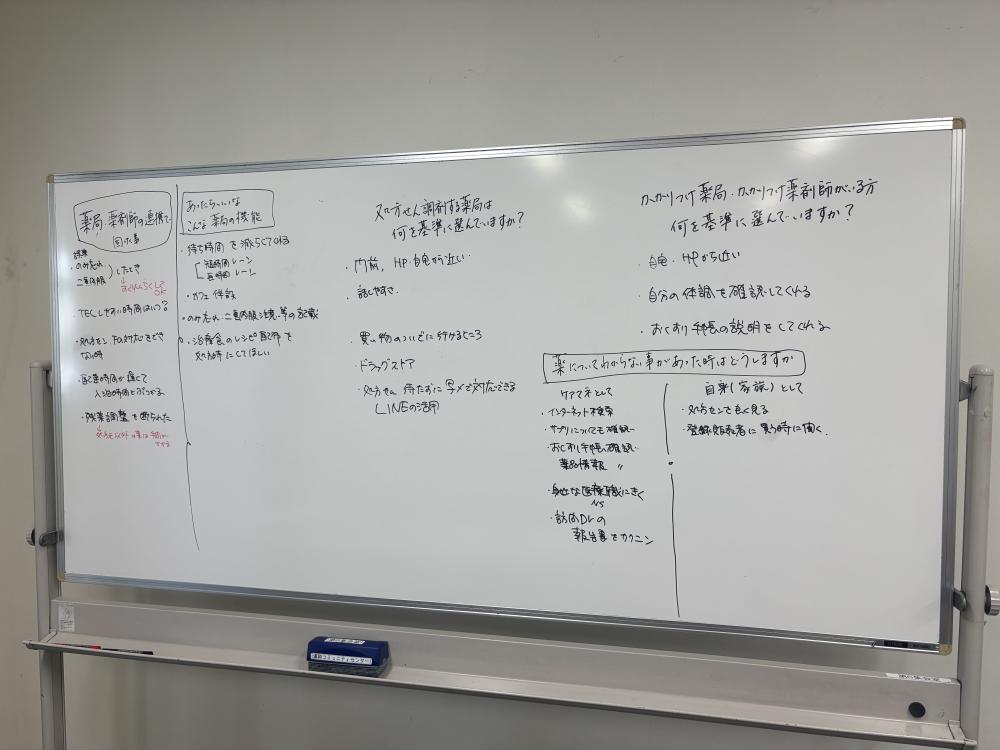 薬局・薬剤師の連携で
困った事
誤薬
・のみ忘れ
二重内服
したとき
OK
・TELしやすい時間はいつ?
・処方セン、FAX対応をでき
ない時
・配達時間が遅くて
入浴時間とぶつかる
・残薬調整を断られた
あったらいいな
こんな薬局の機能
・待ち時間を減らしてくれる
短時間レーン
長時間レーン
・カフェ併設
・のみ忘れ・二重内服注意等の記載
・治療食のレシピ配布を
処方時にしてほしい
処方せん調剤する薬局は
何を基準に選んでいますか?
・門前, HP・自宅から近い
・話しやすさ
・買い物のついでに行けるところ
・ドラッグストア
・処方せん 待たずに写メで対応できる
LINEの活用
かかりつけ薬局・かかりつけ薬剤師がいる方
何を基準に選んでいますか?
・自宅・HPから近い
・自分の体調を確認してくれる
・おくすり手帳の説明をしてくれる
薬についてわからない事があった時はどうしますか
ケアマネとして
・インターネット検索
・サプリについても確認
・おくすり手帳の確認
薬品情報 〃
・身近な医療職にきく
NS
・訪問Drの
報告書をカクニン
自身(家族)として
・処方センで良く見る
・登録販売者に買う時に聞く.
遠和コミュニティセンター